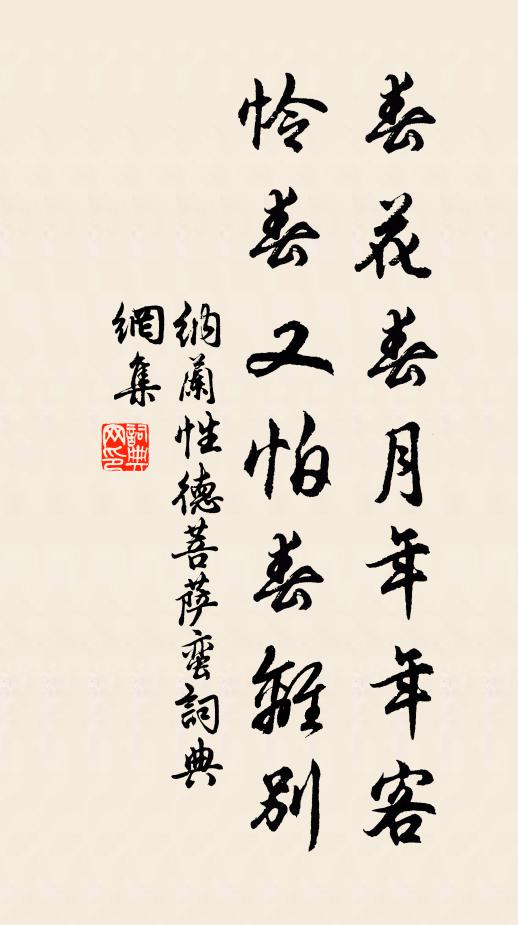 春花春月年年客
怜春又怕春離別
納蘭性德菩薩蠻詞典
網集
詞典
网印